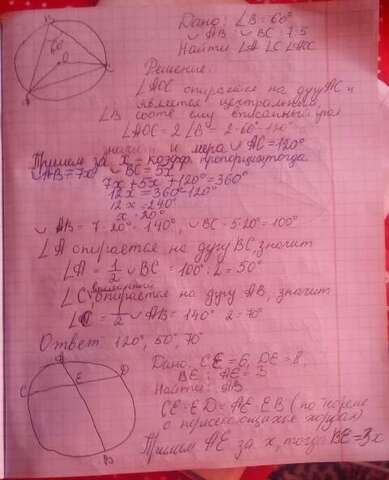 B
Дано: ∠B = 60°
∪ AB : ∪ BC = 7:5
Найти ∠A ∠C ∠AOC
60°
O
Решение:
∠AOC опирается на дугу AC и
является центральным,
∠B соотв ему вписанный угол
∠AOC = 2 ∠B = 2·60° = 120°
и мера ∪ AC = 120°
Примем за x - коэфф. пропорции, тогда
∪ AB = 7x ∪ BC = 5x
7x + 5x + 120° = 360°
12x = 360° - 120°
12x = 240°
x = 20°
∪ AB = 7·20° = 140°, ∪ BC = 5·20° = 100°
∠A опирается на дугу BC, значит
∠A = 1/2 ∪ BC = 100° : 2 = 50°
∠C опирается на дугу AB, значит
∠C = 1/2 ∪ AB = 140° : 2 = 70°
Ответ: 120°, 50°, 70°
Дано: CE = 6, DE = 8
BE : AE = 3
Найти: AB
C E D
B
CE · ED = AE · EB (по теореме
о пересекающихся хордах)
Примем AE за x, тогда BE = 3x